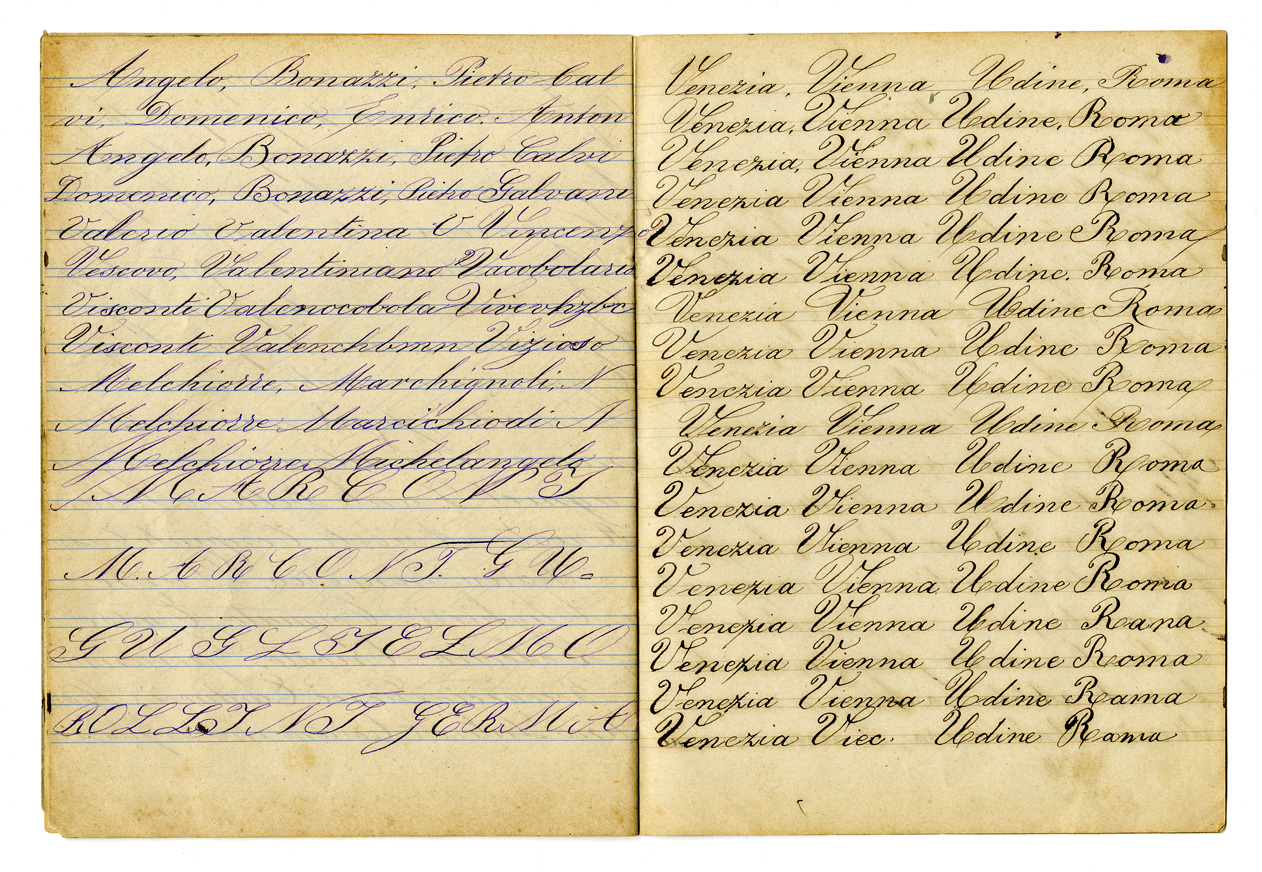 Angelo, Bonazzi, Pietro Cal
vi, Domenico, Enrico, Anton
Angelo, Bonazzi, Pietro Calvi
Domenico, Bonazzi, Pietro Galvani
Valerio Valentina V Vincenzo
Vescovo, Valentiniano Vacobolario
Visconti Valenocobola
Visconti Vizioso
Melchiorre, Marchignoli, N
Melchiorre Marcichiodi N
Melchiorre, Michelangelo
M A R C O N I
M. A R C O N I. G U=
G U G L I E L M O
R O L L I N I G E R M A
Venezia, Vienna, Udine, Roma
Venezia, Vienna Udine, Roma
Venezia, Vienna Udine Roma
Venezia Vienna Udine Roma
Venezia Vienna Udine Roma
Venezia Vienna Udine. Roma
Venezia Vienna Udine Roma
Venezia Vienna Udine Roma
Venezia Vienna Udine Roma
Venezia Vienna Udine Roma
Venezia Vienna Udine Roma
Venezia Vienna Udine Roma
Venezia Vienna Udine Roma
Venezia Vienna Udine Roma
Venezia Vienna Udine Rana
Venezia Vienna Udine Roma
Venezia Vienna Udine Rama
Venezia Viec. Udine Rama